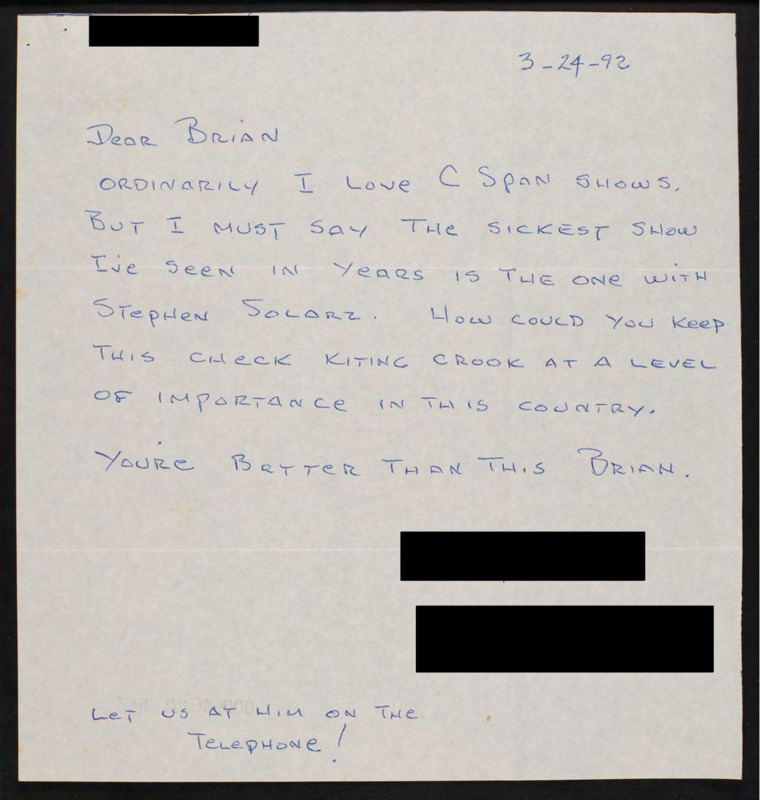 3-24-92
Dear Brian
Ordinarily I love C Span shows.
But I must say the sickest show
I've seen in years is the one with
Stephen Solarz. How could you keep
this check kiting crook at a level
of importance in this country.
You're better than this Brian.
Let us at him on the
telephone!